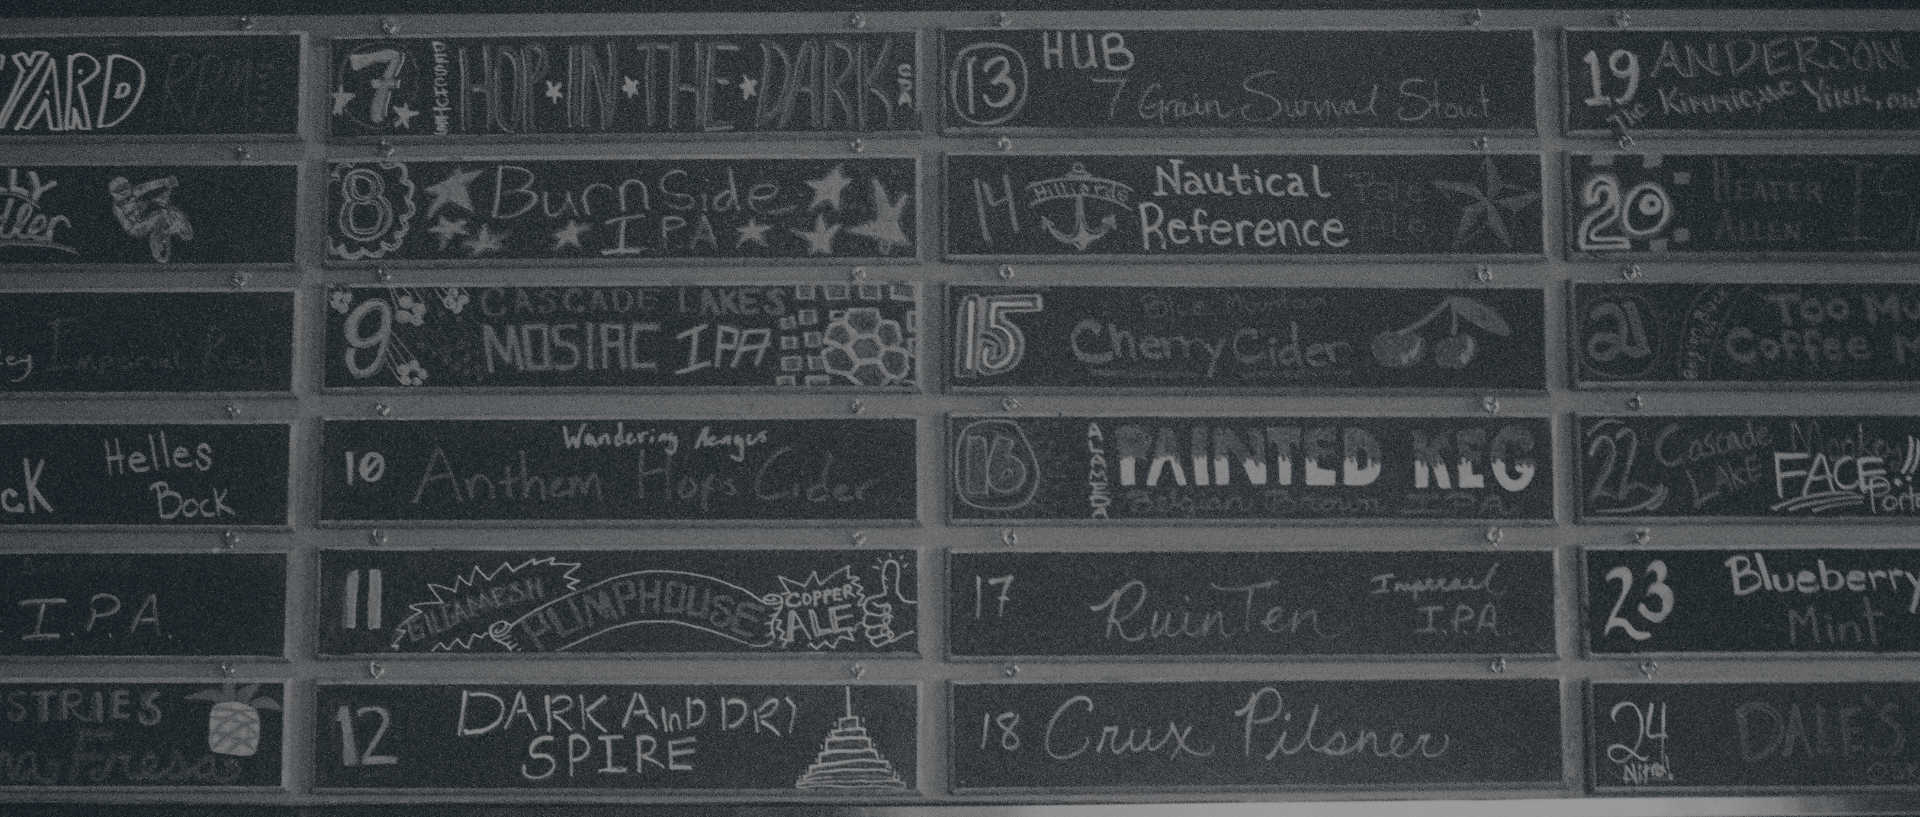 YARD
Helles
Bock
I.P.A.
STRIES
Fresa
7
HOP IN THE DARK
8
BurnSide
IPA
9
CASCADE LAKES
MOSIAC IPA
10
Wandering Aengus
Anthem Hops Cider
11
GILGAMESH
PUMPHOUSE
COPPER
ALE
12
DARK AnD DRY
SPIRE
13
HUB
7 Grain Survival Stout
14
Hilliards
Nautical
Reference
Pale
Ale
15
Cherry Cider
16
ALAMEDA
PAINTED KEG
Belgian Brown IPA
17
RuinTen
Imperial
I.P.A.
18
Crux Pilsner
19
ANDERSON
The Kimmie, the Yink, and
20
HEATER
ALLEN
21
TOO MU
COFFEE M
22
Cascade
LAKE
Monkey
FACE!!
Porte
23
Blueberry
Mint
24
Nitro!
DALE'S